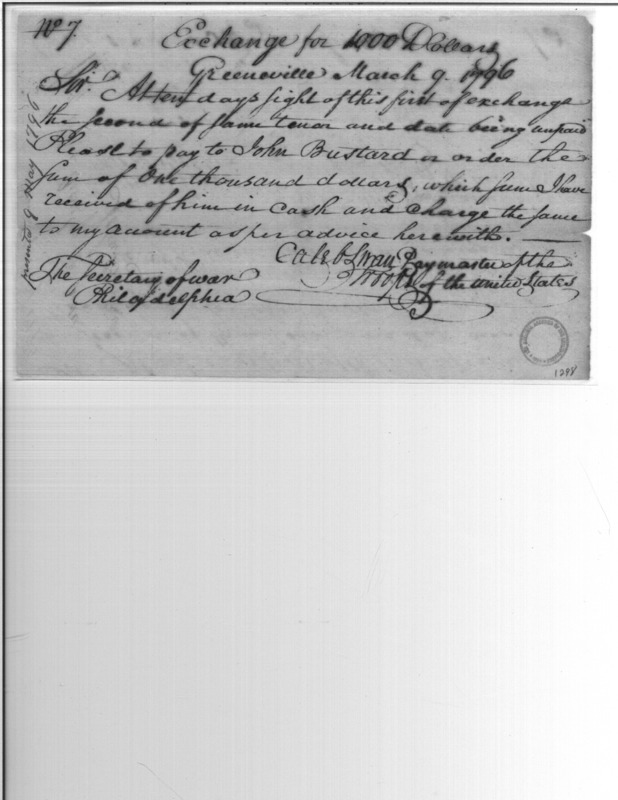 No 7.
Exchange for 1000 Dollars
Greeneville March 9. 1796
Sir. At ten days sight of this first of exchange
the second of same tenor and date being unpaid
Please to pay to John Bustard or order the
sum of One thousand dollars, which sum I have
received of him in cash and charge the same
to my account as per advice herewith.
Caleb Swan Paymaster of the
Troops of the United States
The Secretary of war
Philadelphia
presented 9 May 1796
1298